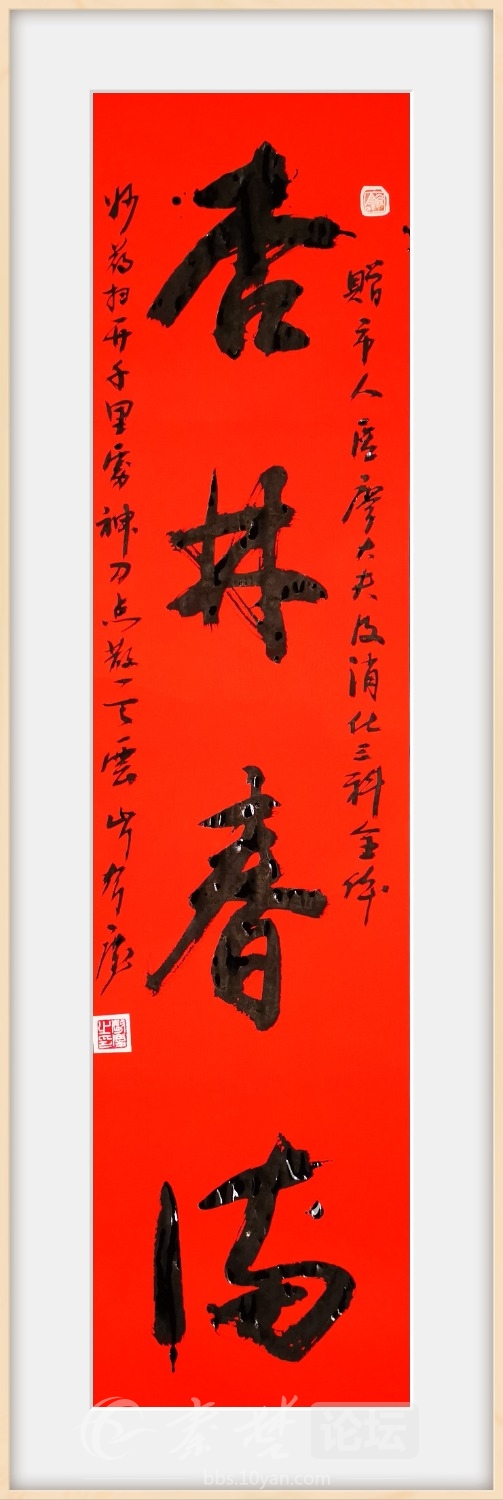 贈市人医廖大夫及消化三科全体
杏林春满
妙药扫开千里雾神刀点散一天雲
秦楚论坛
bbs.10yan.com